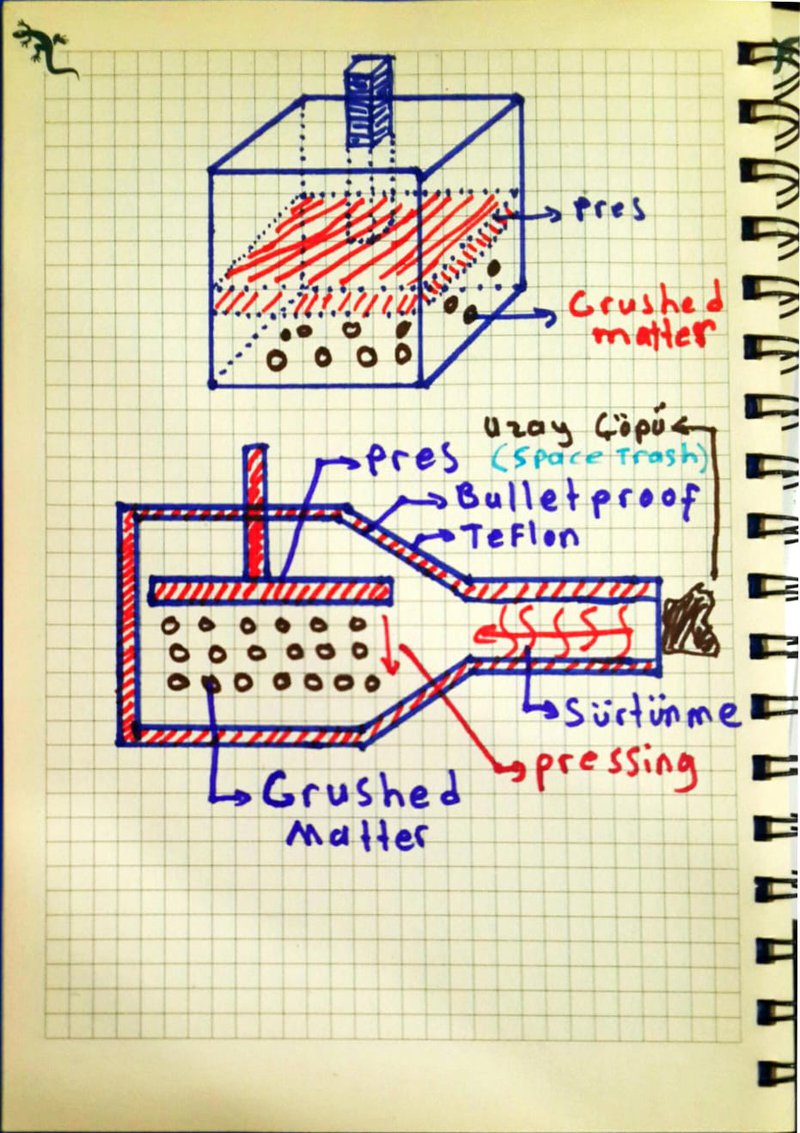 pres
Crushed
matter
uzay Çöpü
(Space Trash)
pres
Bulletproof
Teflon
Sürtünme
pressing
Crushed
Matter